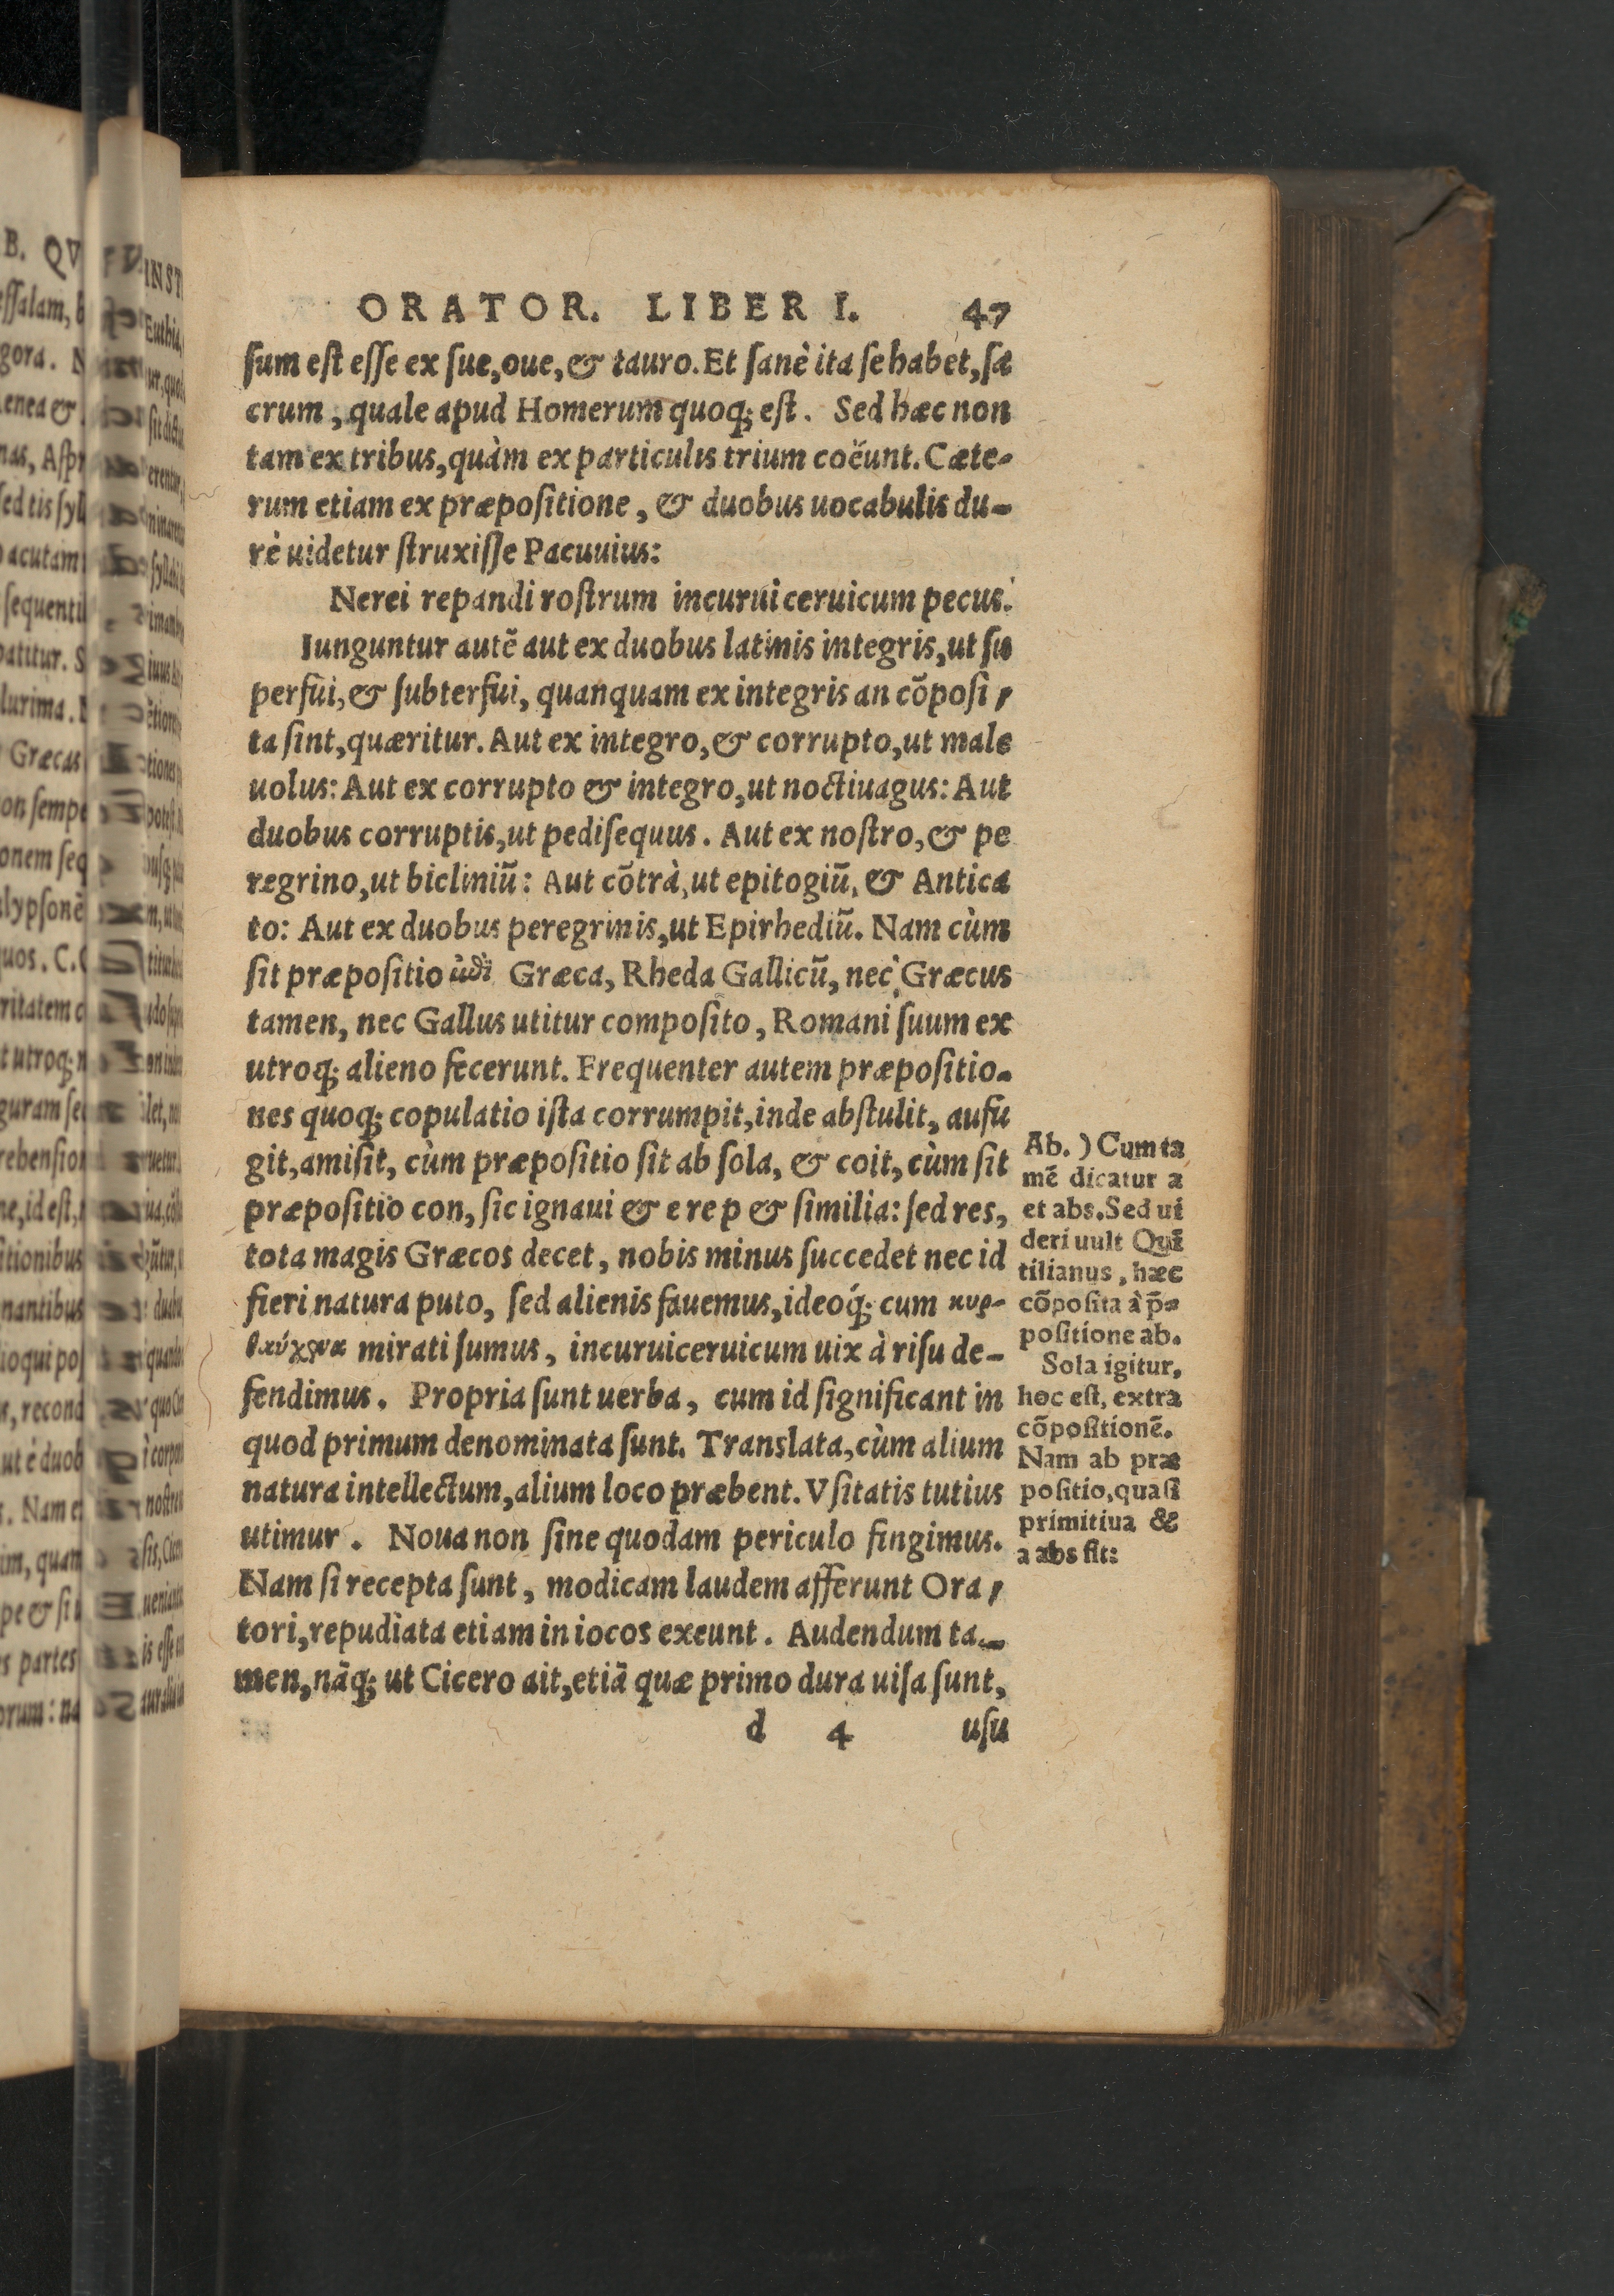 ORATOR. LIBER I. 47
ſum eſt eſſe ex ſue, oue, & tauro. Et ſanè ita ſe habet, ſa
crum, quale apud Homerum quoq; eſt. Sed hæc non
tam ex tribus, quàm ex particulis trium coëunt. Cæte-
rum etiam ex præpoſitione, & duobus uocabulis du-
rè uidetur ſtruxiſſe Pacuuius:
Nerei repandi roſtrum incurui ceruicum pecus.
Iunguntur autē aut ex duobus latinis integris, ut ſu
perfui, & ſubterfui, quanquam ex integris an cōpoſi/
ta ſint, quæritur. Aut ex integro, & corrupto, ut male
uolus: Aut ex corrupto & integro, ut noctiuagus: Aut
duobus corruptis, ut pediſequus. Aut ex noſtro, & pe
regrino, ut bicliniū: Aut cōtrà, ut epitogiū, & Antica
to: Aut ex duobus peregrinis, ut Epirhediū. Nam cùm
ſit præpoſitio Græca, Rheda Gallicū, nec Græcus
tamen, nec Gallus utitur compoſito, Romani ſuum ex
utroq; alieno fecerunt. Frequenter autem præpoſitio-
nes quoq; copulatio iſta corrumpit, inde abſtulit, aufu
git, amiſit, cùm præpoſitio ſit ab ſola, & coit, cùm ſit
præpoſitio con, ſic ignaui & e re p & ſimilia: ſed res,
tota magis Græcos decet, nobis minus ſuccedet nec id
fieri natura puto, ſed alienis fauemus, ideoq́; cum κυρ-
mirati ſumus, incuruiceruicum uix à riſu de-
fendimus. Propria ſunt uerba, cum id ſignificant in
quod primum denominata ſunt. Translata, cùm alium
natura intellectum, alium loco præbent. Vſitatis tutius
utimur. Noua non ſine quodam periculo fingimus.
Nam ſi recepta ſunt, modicam laudem afferunt Ora/
tori, repudiata etiam in iocos exeunt. Audendum ta-
men, nāq; ut Cicero ait, etiā quæ primo dura uiſa ſunt,
d 4 uſu
Ab.) Cum ta
mē dicatur a
et abs. Sed ui
deri uult Quī
tilianus, hæc
cōpoſita à p̄-
poſitione ab.
Sola igitur,
hoc eſt, extra
cōpoſitionē.
Nam ab præ
poſitio, quaſi
primitiua &
a abs fit: